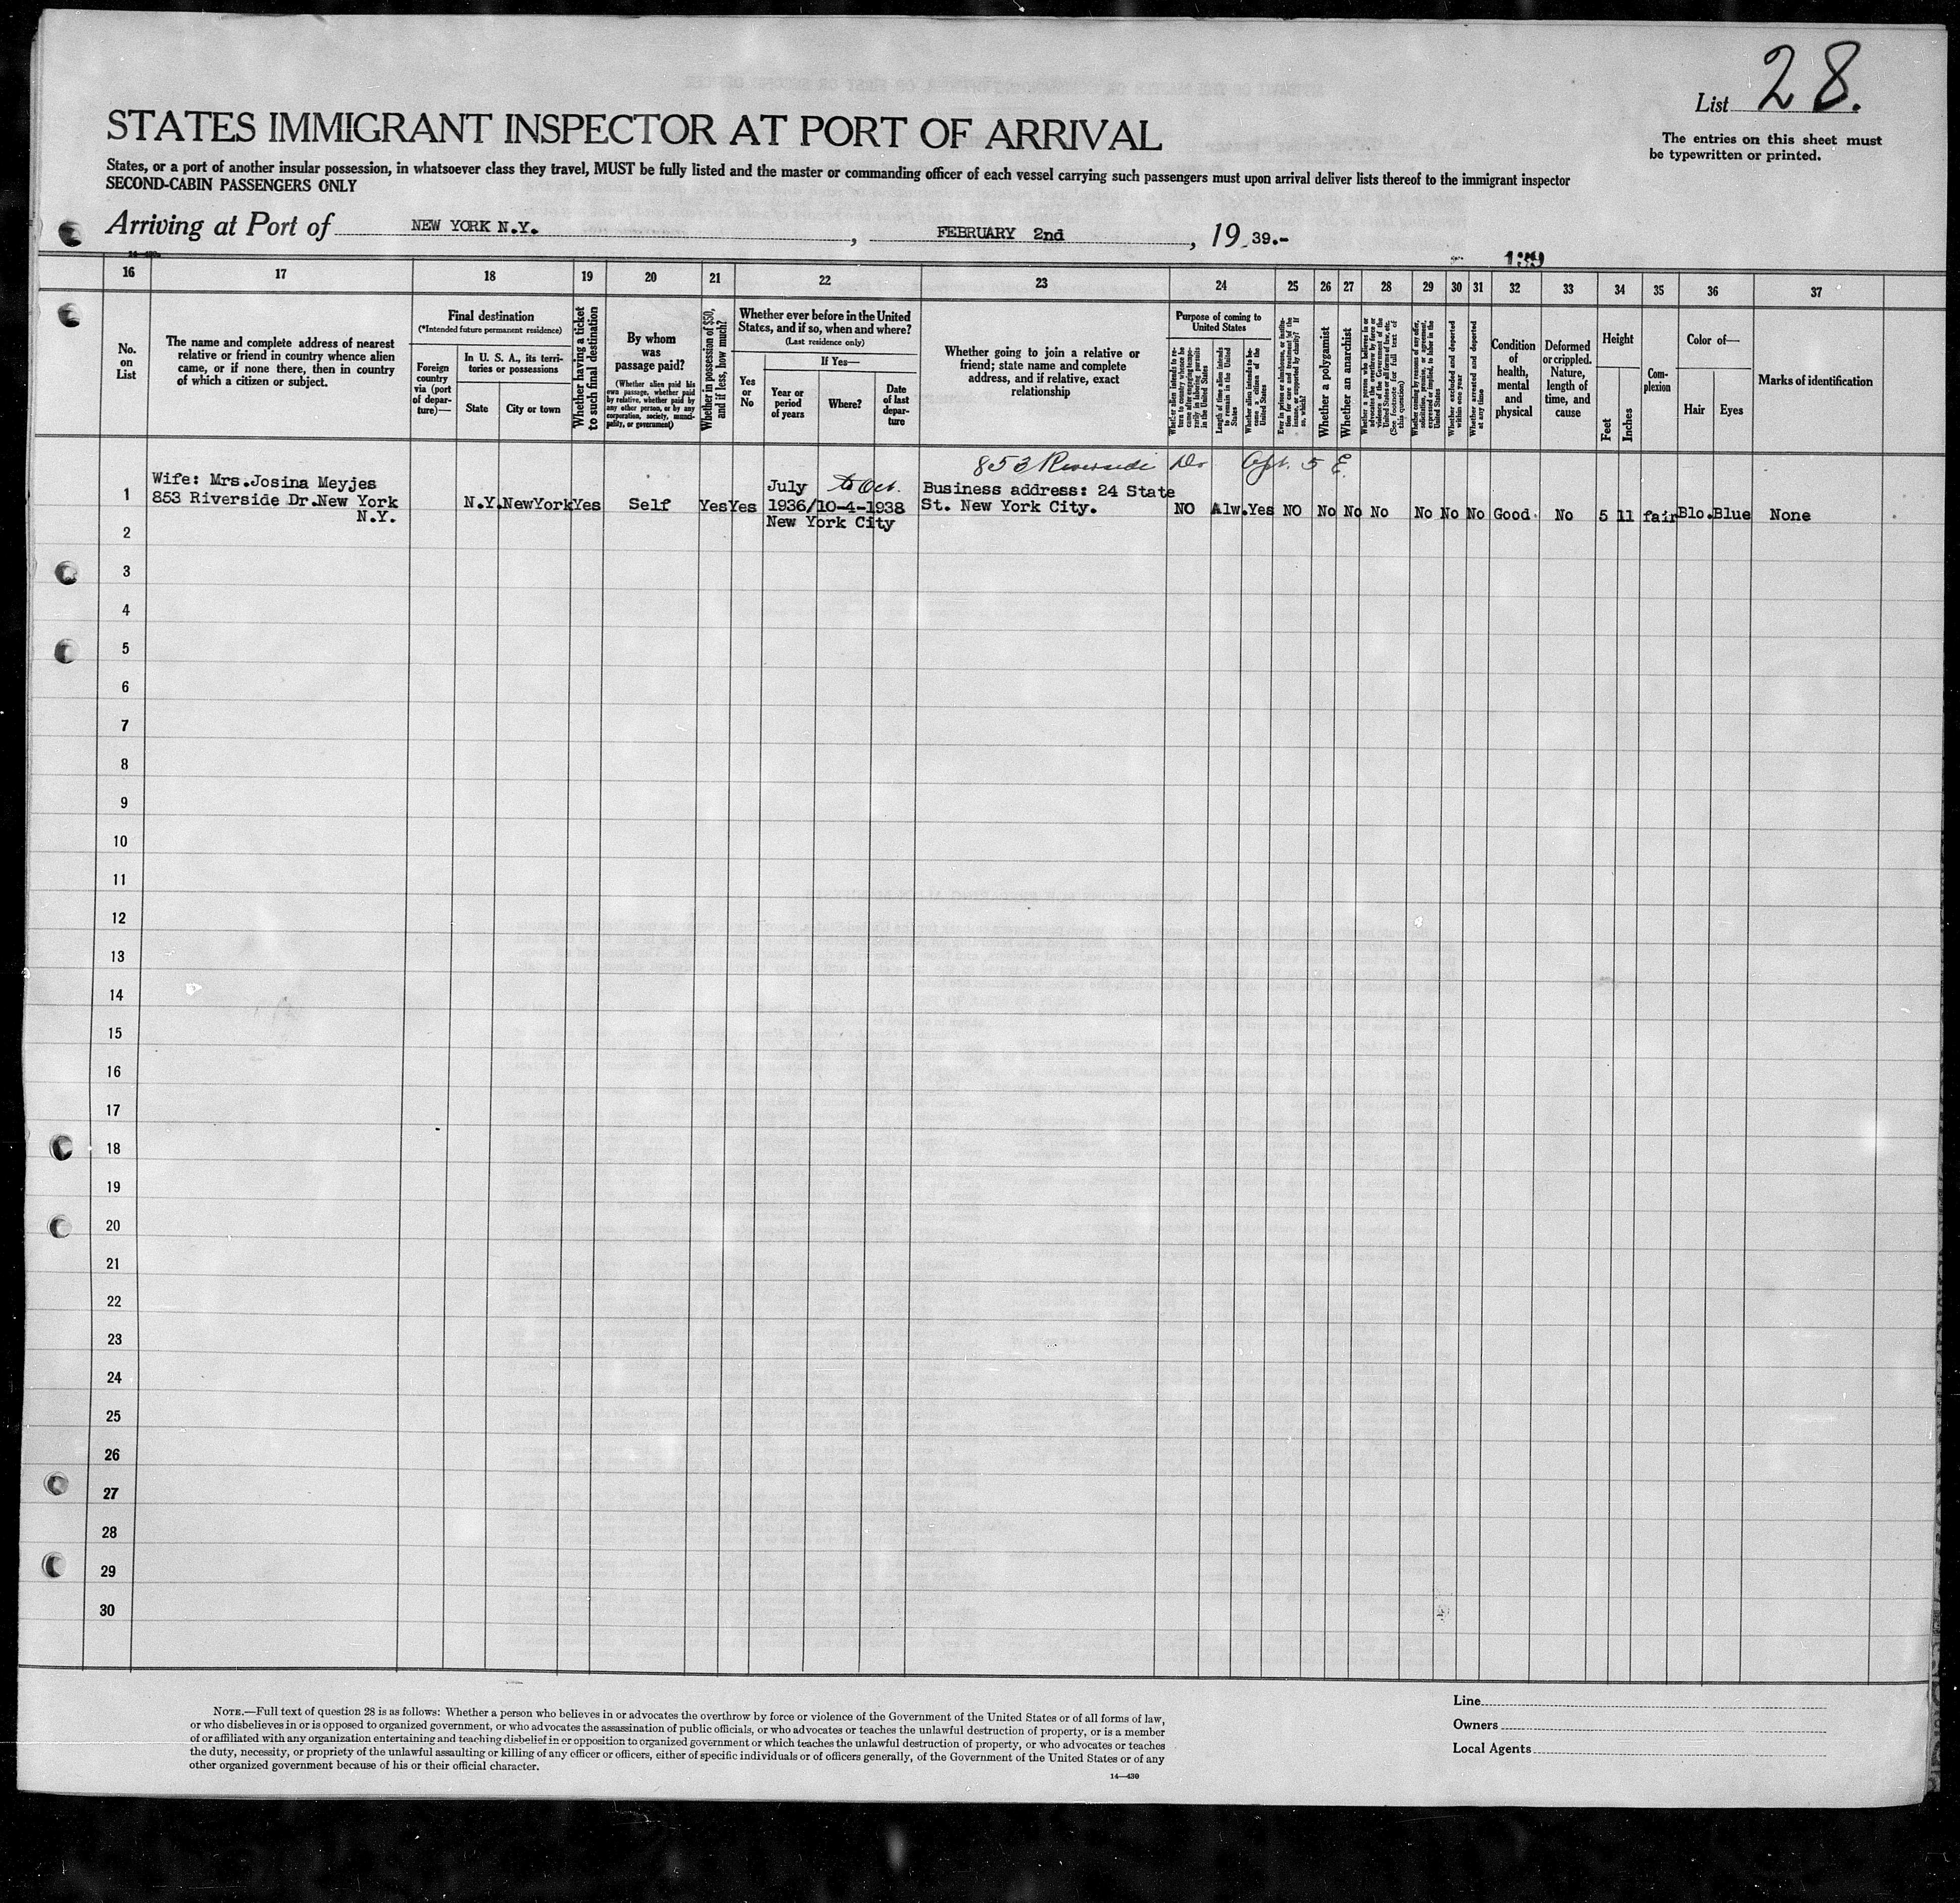 List 28.
The entries on this sheet must
be typewritten or printed.
STATES IMMIGRANT INSPECTOR AT PORT OF ARRIVAL
States, or a port of another insular possession, in whatsoever class they travel, MUST be fully listed and the master or commanding officer of each vessel carrying such passengers must upon arrival deliver lists thereof to the immigrant inspector
SECOND-CABIN PASSENGERS ONLY
Arriving at Port of NEW YORK N.Y. , FEBRUARY 2nd , 19 39.-
139
16 17 18 19 20 21 22 23 24 25 26 27 28 29 30 31 32 33 34 35 36 37
No.
on
List
The name and complete address of nearest
relative or friend in country whence alien
came, or if none there, then in country
of which a citizen or subject.
Final destination
(*Intended future permanent residence)
Foreign
country
via (port
of depar-
ture)—
In U. S. A., its terri-
tories or possessions
State
City or town
Whether having a ticket
to such final destination
By whom
was
passage paid?
(Whether alien paid his
own passage, whether paid
by relative, whether paid by
any other person, or by any
corporation, society, munici-
pality, or government)
Whether in possession of $50,
and if less, how much?
Whether ever before in the United
States, and if so, when and where?
(Last residence only)
Yes
or
No
If Yes—
Year or
period
of years
Where?
Date
of last
depar-
ture
Whether going to join a relative or
friend; state name and complete
address, and if relative, exact
relationship
Purpose of coming to
United States
Whether alien intends to re-
turn to country whence he
came after engaging tempo-
rarily in laboring pursuits
in the United States
Length of time alien intends
to remain in the United
States
Whether alien intends to be-
come a citizen of the
United States
Ever in prison or almshouse, or institu-
tion for care and treatment of the
insane, or supported by charity? If
so, which?
Whether a polygamist
Whether an anarchist
Whether a person who believes in or
advocates the overthrow by force or
violence of the Government of the
United States or all forms of law, etc.
(See footnote for full text of
this question)
Whether coming by reason of any offer,
solicitation, promise, or agreement,
expressed or implied, to labor in the
United States
Whether excluded and deported
within one year
Whether arrested and deported
at any time
Condition
of
health,
mental
and
physical
Deformed
or crippled.
Nature,
length of
time, and
cause
Height
Feet
Inches
Com-
plexion
Color of—
Hair
Eyes
Marks of identification
853 Riverside Dr Apt. 5 E.
Wife: Mrs.Josina Meyjes July to Oct. Business address: 24 State
1 853 Riverside Dr.New York N.Y. NewYork Yes Self Yes Yes 1936/10-4-1938 St. New York City. NO Alw. Yes NO No No No No No No Good No 5 11 fair Blo. Blue None
N.Y. New York City
2
3
4
5
6
7
8
9
10
11
12
13
14
15
16
17
18
19
20
21
22
23
24
25
26
27
28
29
30
NOTE.—Full text of question 28 is as follows: Whether a person who believes in or advocates the overthrow by force or violence of the Government of the United States or of all forms of law,
or who disbelieves in or is opposed to organized government, or who advocates the assassination of public officials, or who advocates or teaches the unlawful destruction of property, or is a member
of or affiliated with any organization entertaining and teaching disbelief in or opposition to organized government or which teaches the unlawful destruction of property, or who advocates or teaches
the duty, necessity, or propriety of the unlawful assaulting or killing of any officer or officers, either of specific individuals or of officers generally, of the Government of the United States or of any
other organized government because of his or their official character.
14—430
Line
Owners
Local Agents